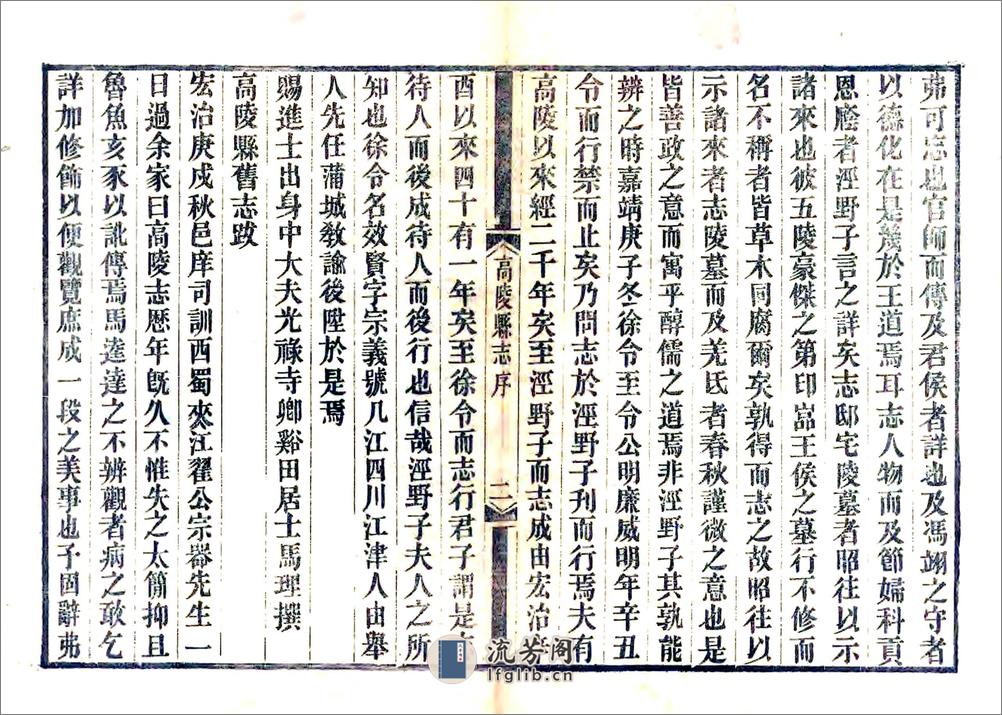 弗可忘也官師而傳及君侯者詳也及馮翊之守者
以德化在是幾於王道焉耳志人物而及節婦科貢
恩廕者涇野子言之詳矣志邸宅陵墓者昭往以示
諸來也彼五陵豪傑之第印嵓王侯之墓行不修而
名不稱者皆草木同腐爾矣孰得而志之故昭往以
示諸來者志陵墓而及羌氏者春秋謹微之意也是
皆善政之意而寓乎醇儒之道焉非涇野子其孰能
辨之時嘉靖庚子冬徐令至令公明廉威明年辛丑
令而行禁而止矣乃問志於涇野子刊而行焉夫有
高陵以來經二千年矣至涇野子而志成由宏治
高陵縣志 序 二
酉以來四十有一年矣至徐令而志行君子謂是
待人而後成待人而後行也信哉涇野子夫人之所
知也徐令名效賢字宗義號几江四川江津人由舉
人先任蒲城敎諭後陞於是焉
賜進士出身中大夫光祿寺卿谿田居士馬理撰
高陵縣舊志跋
宏治庚戌秋邑庠司訓西蜀夾江翟公宗器先生一
日過余家曰高陵志歷年旣久不惟失之太簡抑且
魯魚亥豕以訛傳焉馬達達之不辨觀者病之敢乞
詳加修飾以便觀覽庶成一段之美事也予固辭弗
流芳阁
lfglib.cn